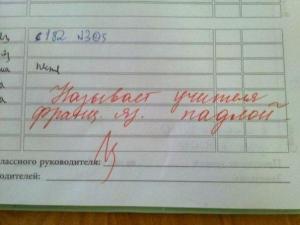 с 182 №305
Називает учителя
франц. яз. падлой
лассного руководителя:
одителей: